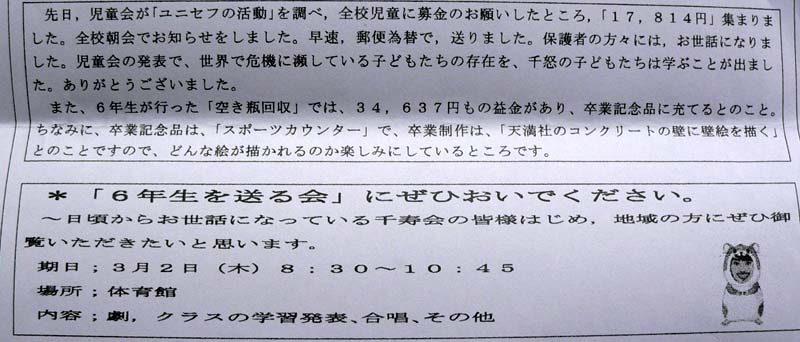 先日，児童会が「ユニセフの活動」を調べ，全校児童に募金のお願いしたところ，「１７，８１４円」集まりま
した。全校朝会でお知らせをしました。早速，郵便為替で，送りました。保護者の方々には，お世話になりま
した。児童会の発表で、世界で危機に瀕している子どもたちの存在を、千怒の子どもたちは学ぶことが出まし
た。ありがとうございました。
また、６年生が行った「空き瓶回収」では、３４，６３７円もの益金があり、卒業記念品に充てるとのこと。
ちなみに、卒業記念品は、「スポーツカウンター」で、卒業制作は、「天満社のコンクリートの壁に壁絵を描く」
とのことですので、どんな絵が描かれるのか楽しみにしているところです。
＊「６年生を送る会」にぜひおいでください。
～日頃からお世話になっている千寿会の皆様はじめ，地域の方にぜひ御
覧いただきたいと思います。
期日；３月２日（木）８：３０～１０：４５
場所；体育館
内容；劇，クラスの学習発表、合唱、その他